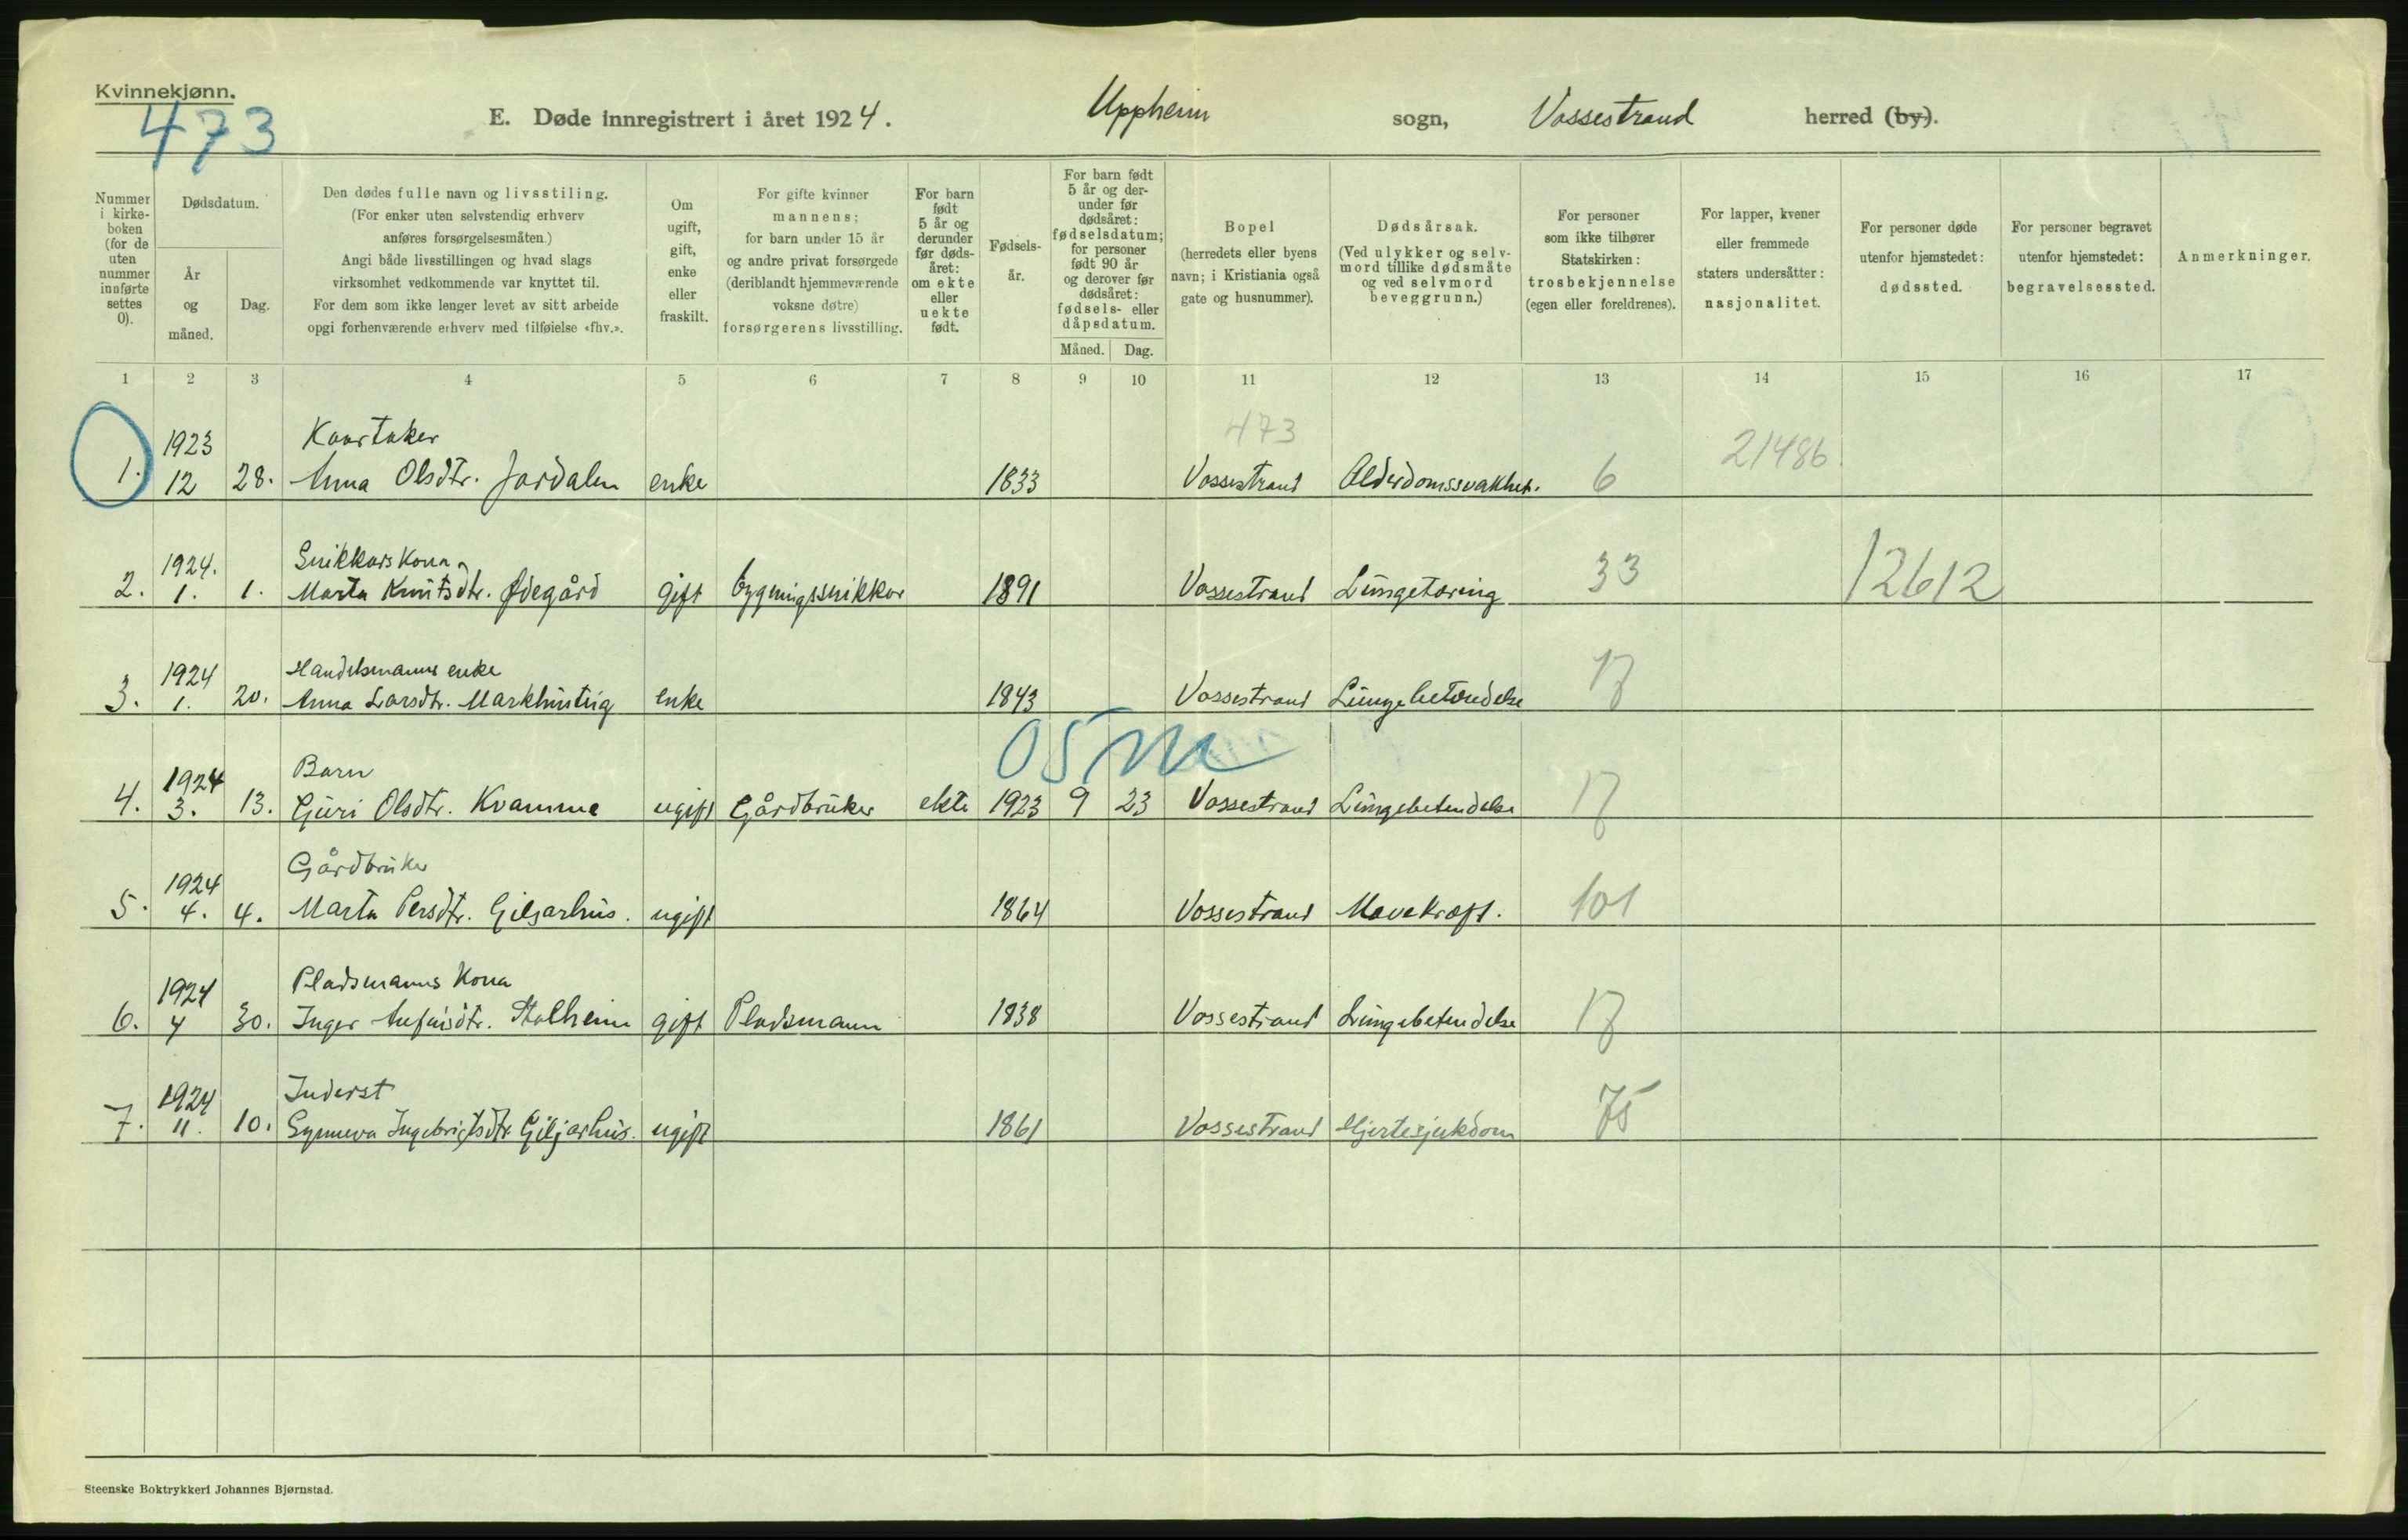 Kvinnekjønn.
473
E. Døde innregistrert i året 1924. Uppheim sogn, Vossestrand herred (by).
Nummer i kirke-boken (for de uten nummer innførte settes 0).
Dødsdatum.
År og måned.
Dag.
Den dødes fulle navn og livsstiling.
(For enker uten selvstendig erhverv
anføres forsørgelsesmåten.)
Angi både livsstillingen og hvad slags
virksomhet vedkommende var knyttet til.
For dem som ikke lenger levet av sitt arbeide
opgi forhenværende erhverv med tilføielse «fhv.».
Om
ugift,
gift,
enke
eller
fraskilt.
For gifte kvinner
mannens;
for barn under 15 år
og andre privat forsørgede
(deriblandt hjemmeværende
voksne døtre)
forsørgerens livsstilling.
For barn
født
5 år og
derunder
før døds-
året:
om ekte
eller
uekte
født.
Fødsels-
år.
For barn født
5 år og der-
under før
dødsåret:
fødselsdatum;
for personer
født 90 år
og derover før
dødsåret:
fødsels- eller
dåpsdatum.
Måned. Dag.
Bopel
(herredets eller byens
navn; i Kristiania også
gate og husnummer).
Dødsårsak.
(Ved ulykker og selv-
mord tillike dødsmåte
og ved selvmord
beveggrunn.)
For personer
som ikke tilhører
Statskirken:
trosbekjennelse
(egen eller foreldrenes).
For lapper, kvener
eller fremmede
staters undersåtter:
nasjonalitet.
For personer døde
utenfor hjemstedet:
dødssted.
For personer begravet
utenfor hjemstedet:
begravelsessted.
Anmerkninger.
1 2 3 4 5 6 7 8 9 10 11 12 13 14 15 16 17
1923 Kaartaker 473 21486
1. 12 28. Anna Olsdtr. Jordalen enke 1833 Vossestrand Alderdomssvakhet. 6
1924. Snikkarskona
2. 1. 1. Marta Knutsdtr. Ødegård gift bygningssnikkar 1891 Vossestrand Lungetæring 33 12612
1924 Handelsmanns enke
3. 1. 20. Anna Larsdtr. Markhustig enke 1843 Vossestrand Lungebetendelse 17
05 m
1924 Barn
4. 3. 13. Guri Olsdtr. Kvamme ugift Gårdbruker ekte 1923 9 23 Vossestrand Lungebetendelse 17
1924 Gårdbruker
5. 4. 4. Marta Persdtr. Giljarhus. ugift 1864 Vossestrand Mavekræft. 101
1924 Pladsmanns Kona
6. 4 30. Inger Anfinsdtr. Stalheim gift Pladsmann 1838 Vossestrand Lungebetendelse 17
1924 Inderst
7. 11. 10. Synneva Ingebrigtsdtr. Giljarhus. ugift 1861 Vossestrand Hjertesjukdom 75
Steenske Boktrykkeri Johannes Bjørnstad.